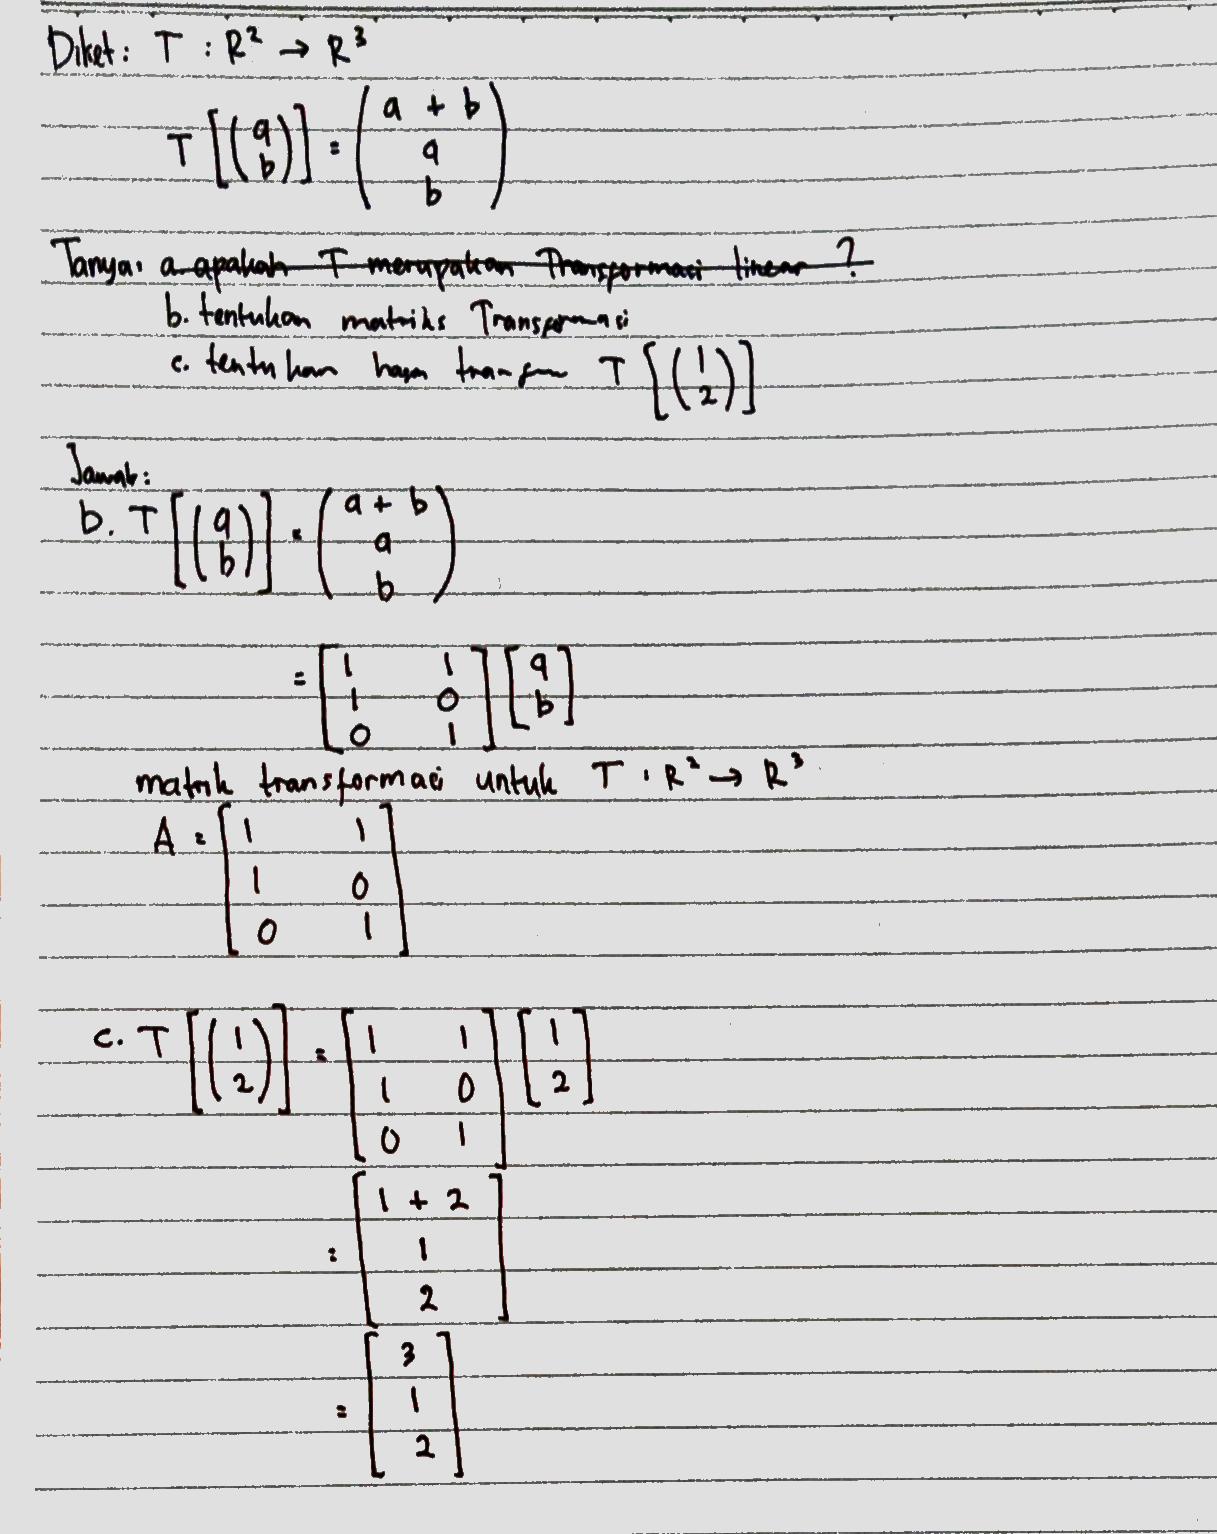 Diket: T : R² → R³
T [(a b)] = (a + b a b)
Tanya: a. apakah T merupakan Transformasi linear ?
b. tentukan matriks Transformasi
c. tentukan transfm T [(1 2)]
Jawab:
b. T [(a b)] = (a + b a b)
= [1 1 1 0 0 1] [a b]
matrik transformasi untuk T : R² → R³
A = [1 1
1 0
0 1]
c. T [(1 2)] = [1 1 1 0 0 1] [1 2]
= [1 + 2 1 2]
= [3 1 2]